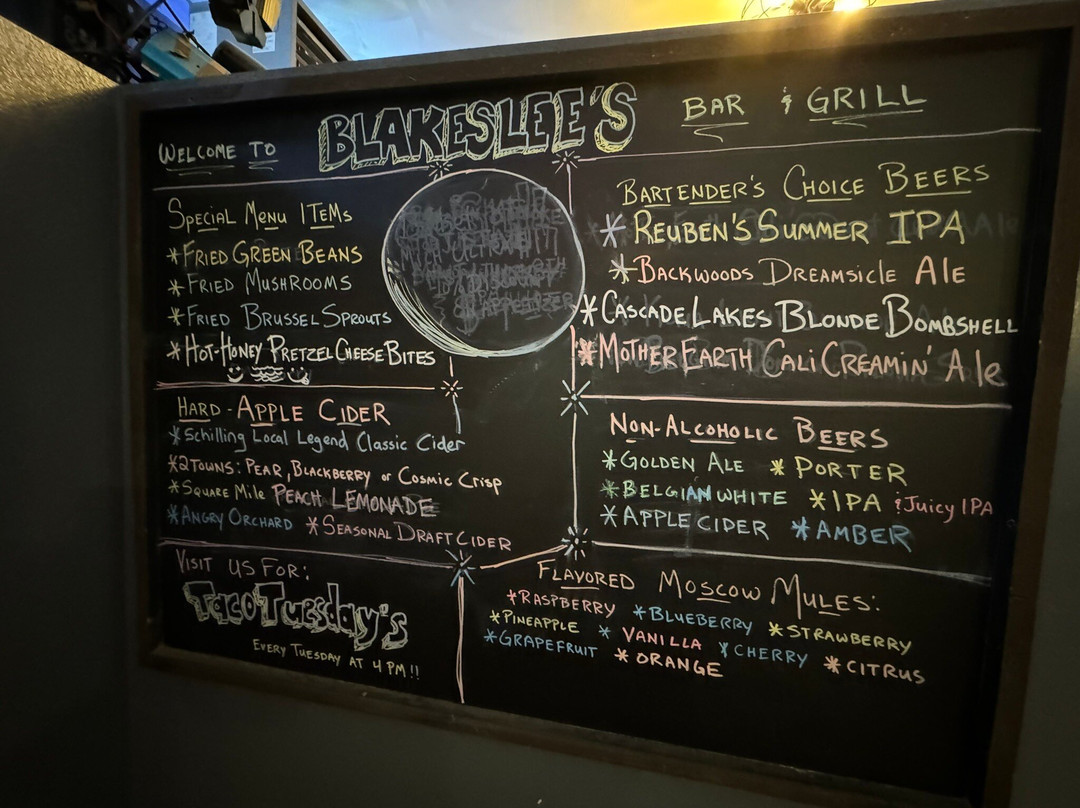 WELCOME TO BLAKESLEE'S BAR & GRILL
SPECIAL MENU ITEMS
*FRIED GREEN BEANS
*FRIED MUSHROOMS
*FRIED BRUSSEL SPROUTS
*HOT-HONEY PRETZEL CHEESE BITES
HARD-APPLE CIDER
*Schilling Local Legend Classic Cider
*2TOWNS: PEAR, BLACKBERRY or COSMIC CRISP
*SQUARE MILE PEACH LEMONADE
*ANGRY ORCHARD *SEASONAL DRAFT CIDER
VISIT US FOR:
TacoTuesday's
EVERY TUESDAY AT 4 PM!!
BARTENDER'S CHOICE BEERS
*REUBEN'S SUMMER IPA
*BACKWOODS DREAMSICLE ALE
*CASCADE LAKES BLONDE BOMBSHELL
*MOTHER EARTH CALI CREAMIN' Ale
NON-ALCOHOLIC BEERS
*GOLDEN ALE *PORTER
*BELGIAN WHITE *IPA & Juicy IPA
*APPLE CIDER *AMBER
FLAVORED MOSCOW MULES:
*RASPBERRY *BLUEBERRY *STRAWBERRY
*PINEAPPLE * VANILLA *CHERRY *CITRUS
*GRAPEFRUIT *ORANGE